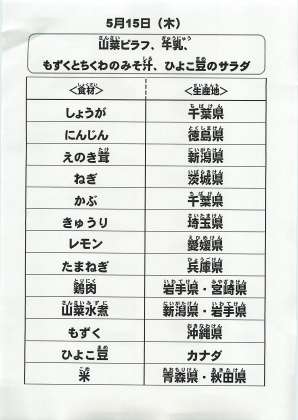 5月15日（木）
山菜ピラフ、牛乳、
もずくとちくわのみそ汁、ひよこ豆のサラダ
<食材> <生産地>
しょうが 千葉県
にんじん 徳島県
えのき茸 新潟県
ねぎ 茨城県
かぶ 千葉県
きゅうり 埼玉県
レモン 愛媛県
たまねぎ 兵庫県
鶏肉 岩手県・宮崎県
山菜水煮 新潟県・岩手県
もずく 沖縄県
ひよこ豆 カナダ
米 青森県・秋田県